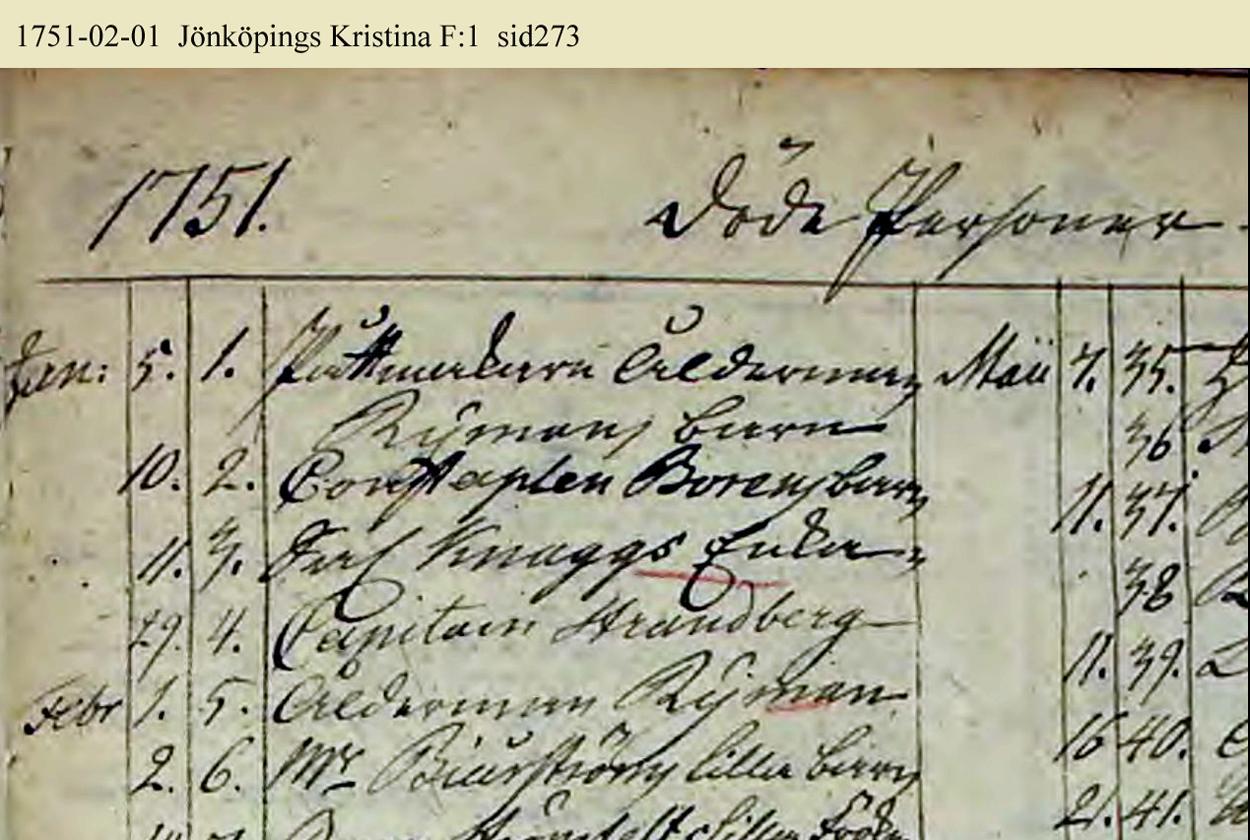 1751-02-01 Jönköpings Kristina F:1 sid273
1751. Döde Personer
Jan: 5. 1. Åldermans Maii 7. 35.
Rÿmans barn 36
10. 2. Constaplen Borens barn 11. 37.
11. 3. Knaggs Enka 38
29. 4. Capitain Strandberg 11. 39.
Febr 1. 5. Ålderman Rÿman 16 40.
2. 6. Mr Biurströms lilla barn 21. 41.
lilla